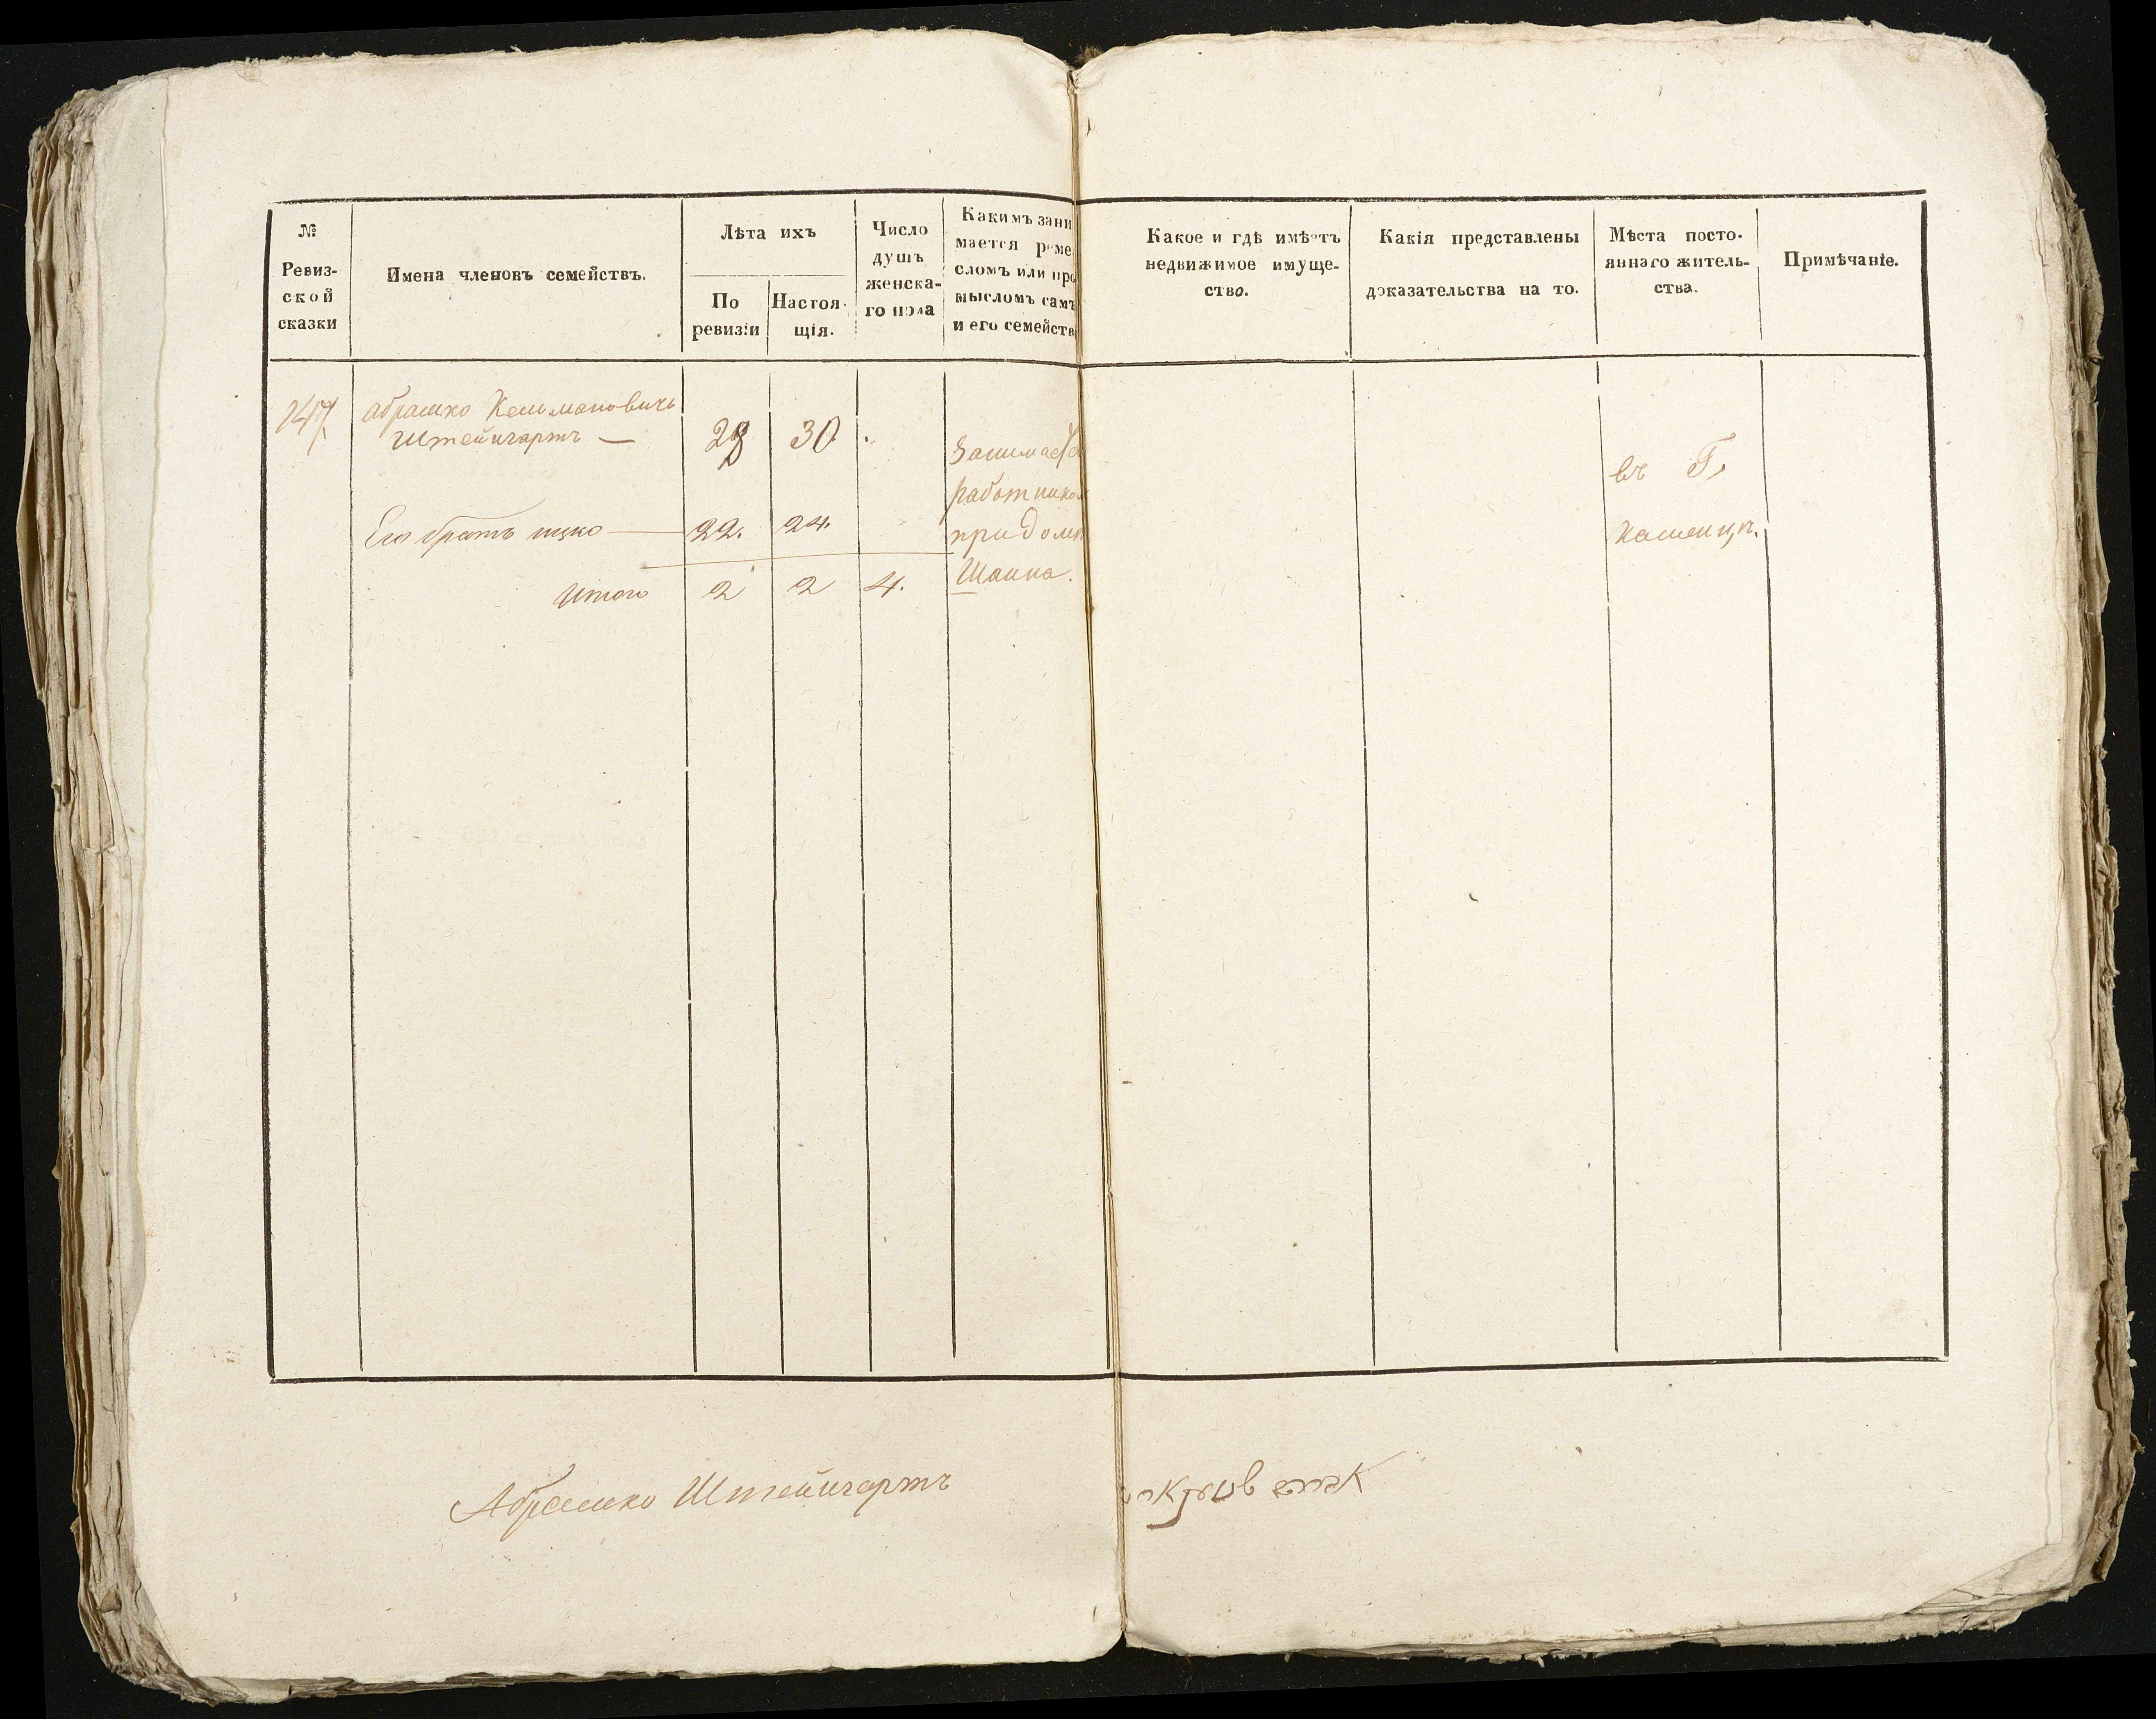 №
Ревиз-
ской
сказки
Имена членовъ семействъ.
Лѣта ихъ
По
ревизіи
Настоя-
щія.
Число
душъ
женска-
го пола
Какимъ зани
мается реме
сломъ или про
мысломъ самъ
и его семейств
Какое и гдѣ имѣетъ
недвижимое имуще-
ство.
Какія представлены
доказательства на то.
Мѣста посто-
яннаго житель-
ства.
Примѣчаніе.
абрамко Кельмановичь
Штейнгартъ — 28 30
Его братъ ицко — 22. 24.
Итого 2 2 4.
Занимает
работнико
при доме
въ Г.
Каменцъ.
Абрамко Штейнгартъ